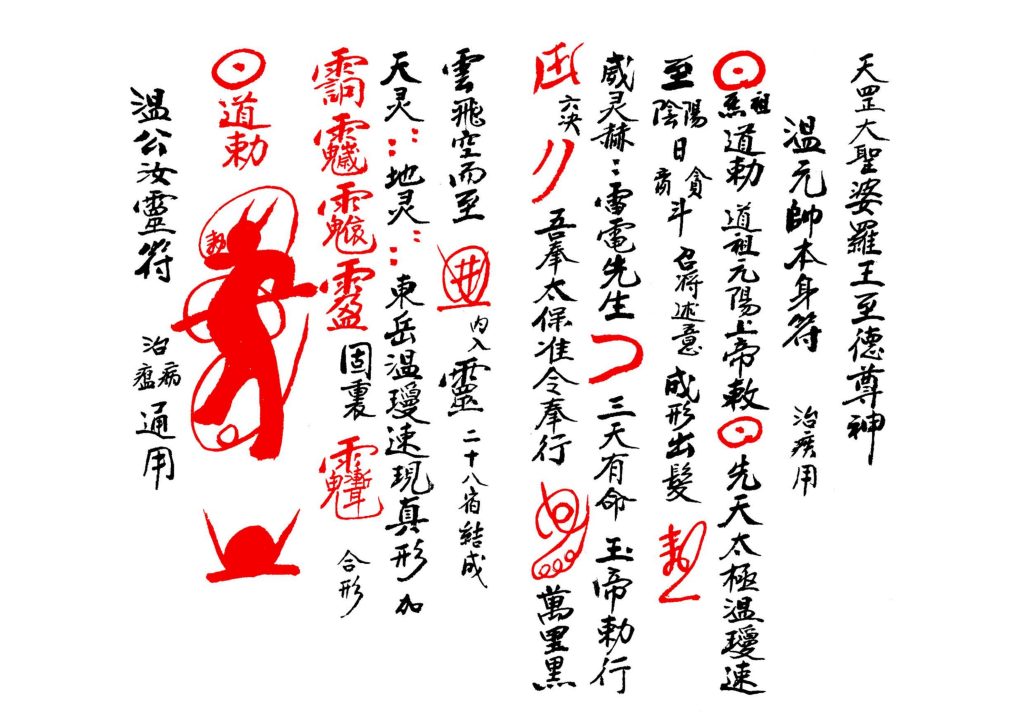 天罡大聖婆羅王至德尊神
溫元帥本身符 治疾用
祖炁道勅 道祖元陽上帝敕 先天太極溫瓊速
至陰陽日 貪斗 召將述意 成形出髮
威灵赫〻雷電先生 三天有命 玉帝勅行
六決 吾奉太保准令奉行 萬里黑
雲飛空而至 內入靈 二十八宿結成
天灵〻地灵〻東岳溫瓊速現真形 加
固裏 合形
道勅
溫公汝靈符 治病瘟通用